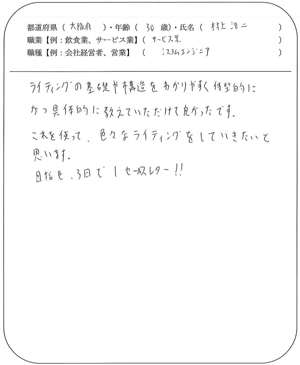 都道府県（大阪府）・年齢（30 歳）・氏名（村上 浩二）
職業【例：飲食業、サービス業】（サービス業）
職種【例：会社経営者、営業】（システムエンジニア）
ライティングの基礎や構造をわかりやすく体型的に
かつ具体的に教えていただけて良かったです。
これを使って、色々なライティングをしていきたいと
思います。
目指せ、3日で1セールスレター!!